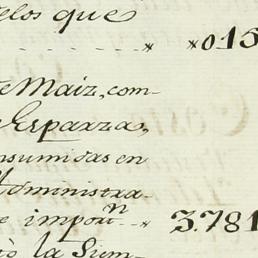 elos que
015
e Maiz, com-
Esparza,
nsumidas en
Administra-
e imporn 3.781
ò la Sum-